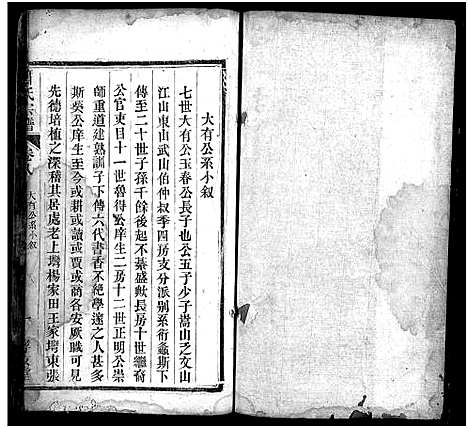 大有公系小叙
七世大有公玉春公長子也公玉于少子嵩山之文山
江山東山武山伯仲叔季四房支分派別系衍螽斯下
傳至二十世子孫千餘後起不綦盛歟長房十世繼裔
公官吏目十一世魯得公庠生二房十二世正明公崇
師重道建熟訓子下傳六代書香不絕學邃之人甚多
斯葵公庠生至今或耕或讀或賈或商各安厥職可見
先德培植之深積其居處老上塆楊家田王家塆東張
氏宗譜
大有公系小叙